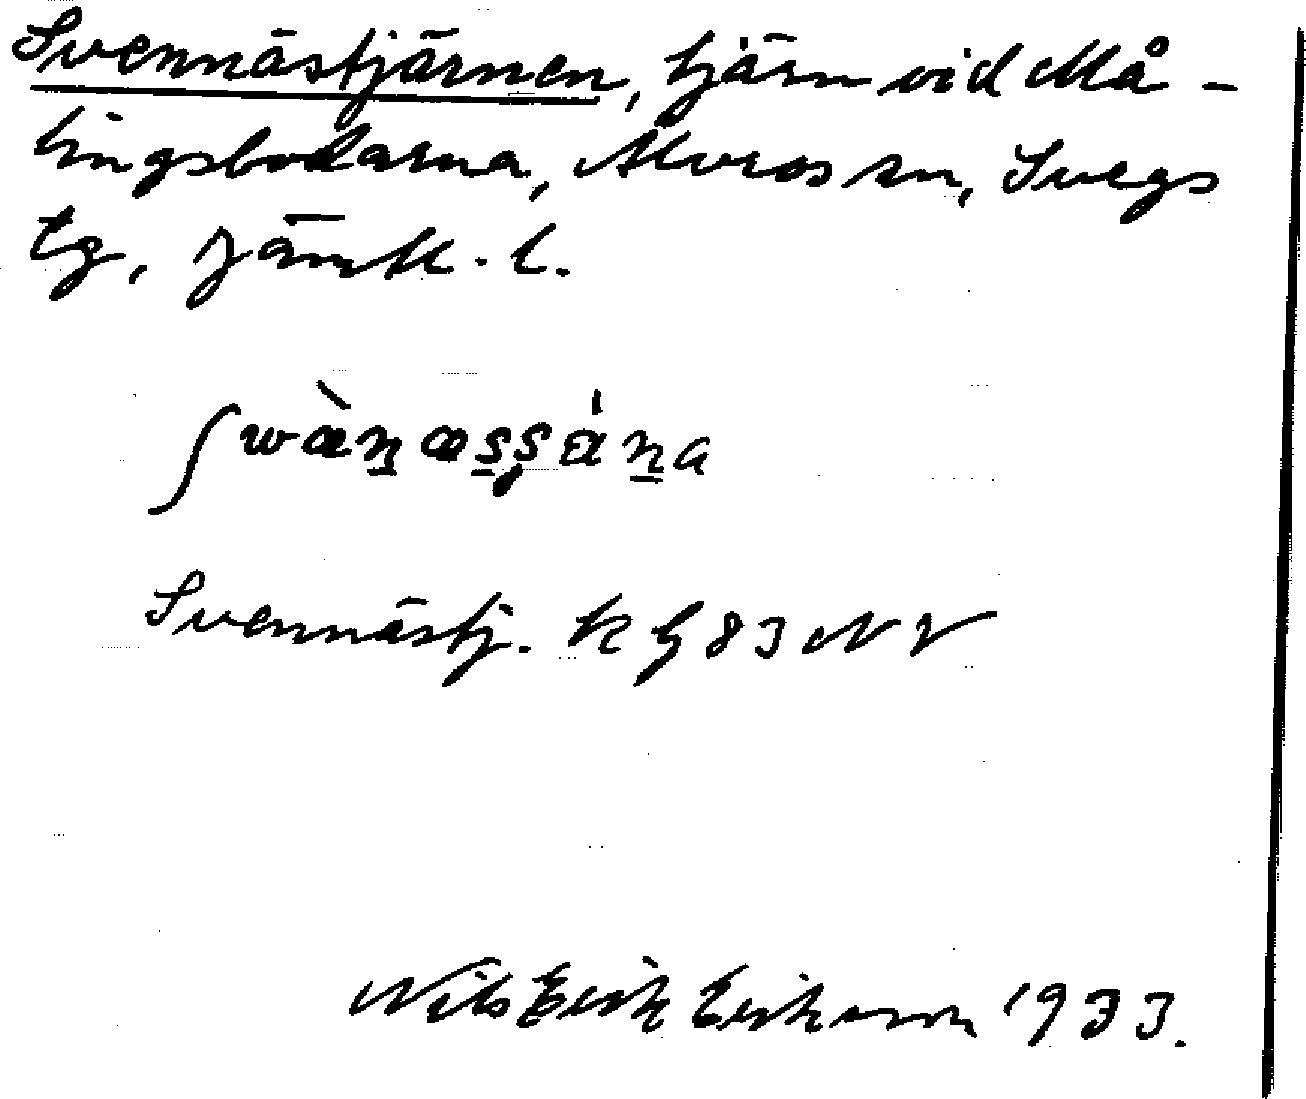 Svennästjärnen, tjärn vid Må-
lingsbodarna, Älvros sn, Svegs
tg, Jämtl. l.
ʃwæ̀n̠æs̠ʂán̠a
Svennästj. K G 83 NV
Nils Erik Eriksson 1933.